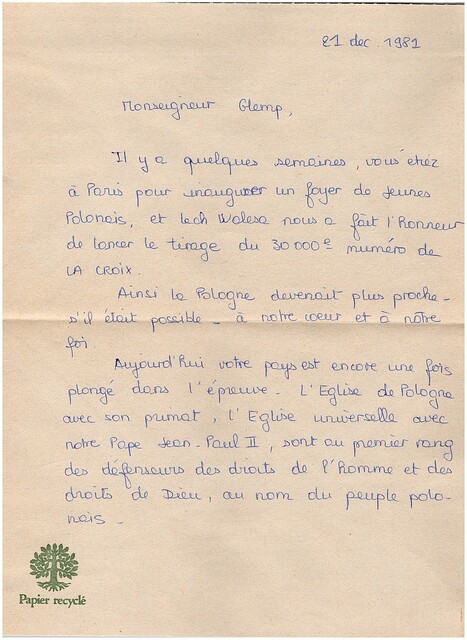 21 dec. 1981
Monseigneur Glemp,
Il y a quelques semaines, vous étiez
à Paris pour inaugurer un foyer de jeunes
Polonais, et Lech Walesa nous a fait l'honneur
de lancer le tirage du 30 000e numéro de
LA CROIX.
Ainsi la Pologne devenait plus proche -
s'il était possible - à notre coeur et à nôtre
foi.
Aujourd'hui votre pays est encore une fois
plongé dans l'épreuve. L'Eglise de Pologne
avec son primat, l'Eglise universelle avec
notre Pape Jean-Paul II, sont au premier rang
des défenseurs des droits de l'homme et des
droits de Dieu, au nom du peuple polo-
nais -
Papier recyclé